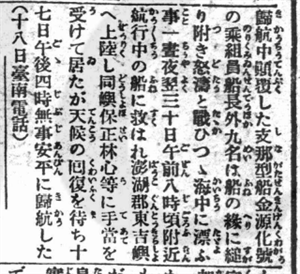 歸航中顛覆した支那型船金源化號
の乘組員船長外九名は船の緣に縋
り附き怒濤と戰ひつゝ海中に漂ふ
事一晝夜翌三十日午前八時頃附近
航行中の船に救はれ澎湖郡東吉嶼
へ上陸し同嶼保正林心等に手當を
受けて居たが天候の回復を待ち十
七日午後四時無事安平に歸航した
(十八日臺南電話)